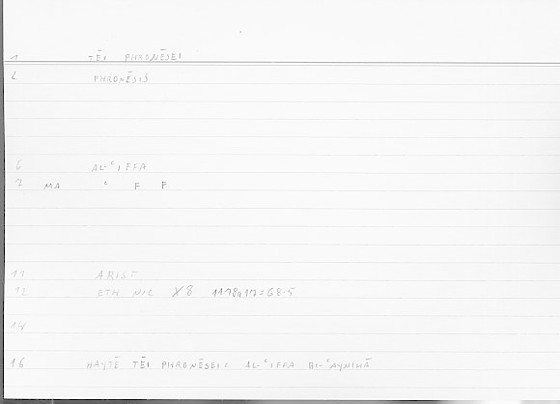 1 TĒI PHRONĒSEI
2 PHRONĒSIS
6 AL-ʿIFFA
7 MA ʿ F F
11 ARIST
12 ETH NIC X8 1178a17=68.5
14
16 HAYTĒ TĒI PHRONĒSEI: AL-ʿIFFA BL-ʿAYNIHĀ